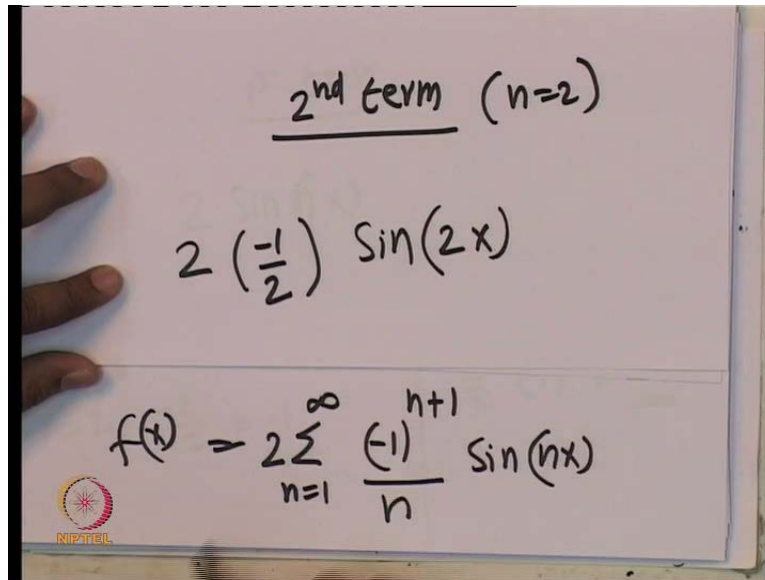 2nd term (n=2)
2 (-1/2) Sin(2x)
f(x) = 2 ∑_{n=1}^{∞} (-1)^{n+1}/n Sin(nx)
NPTEL